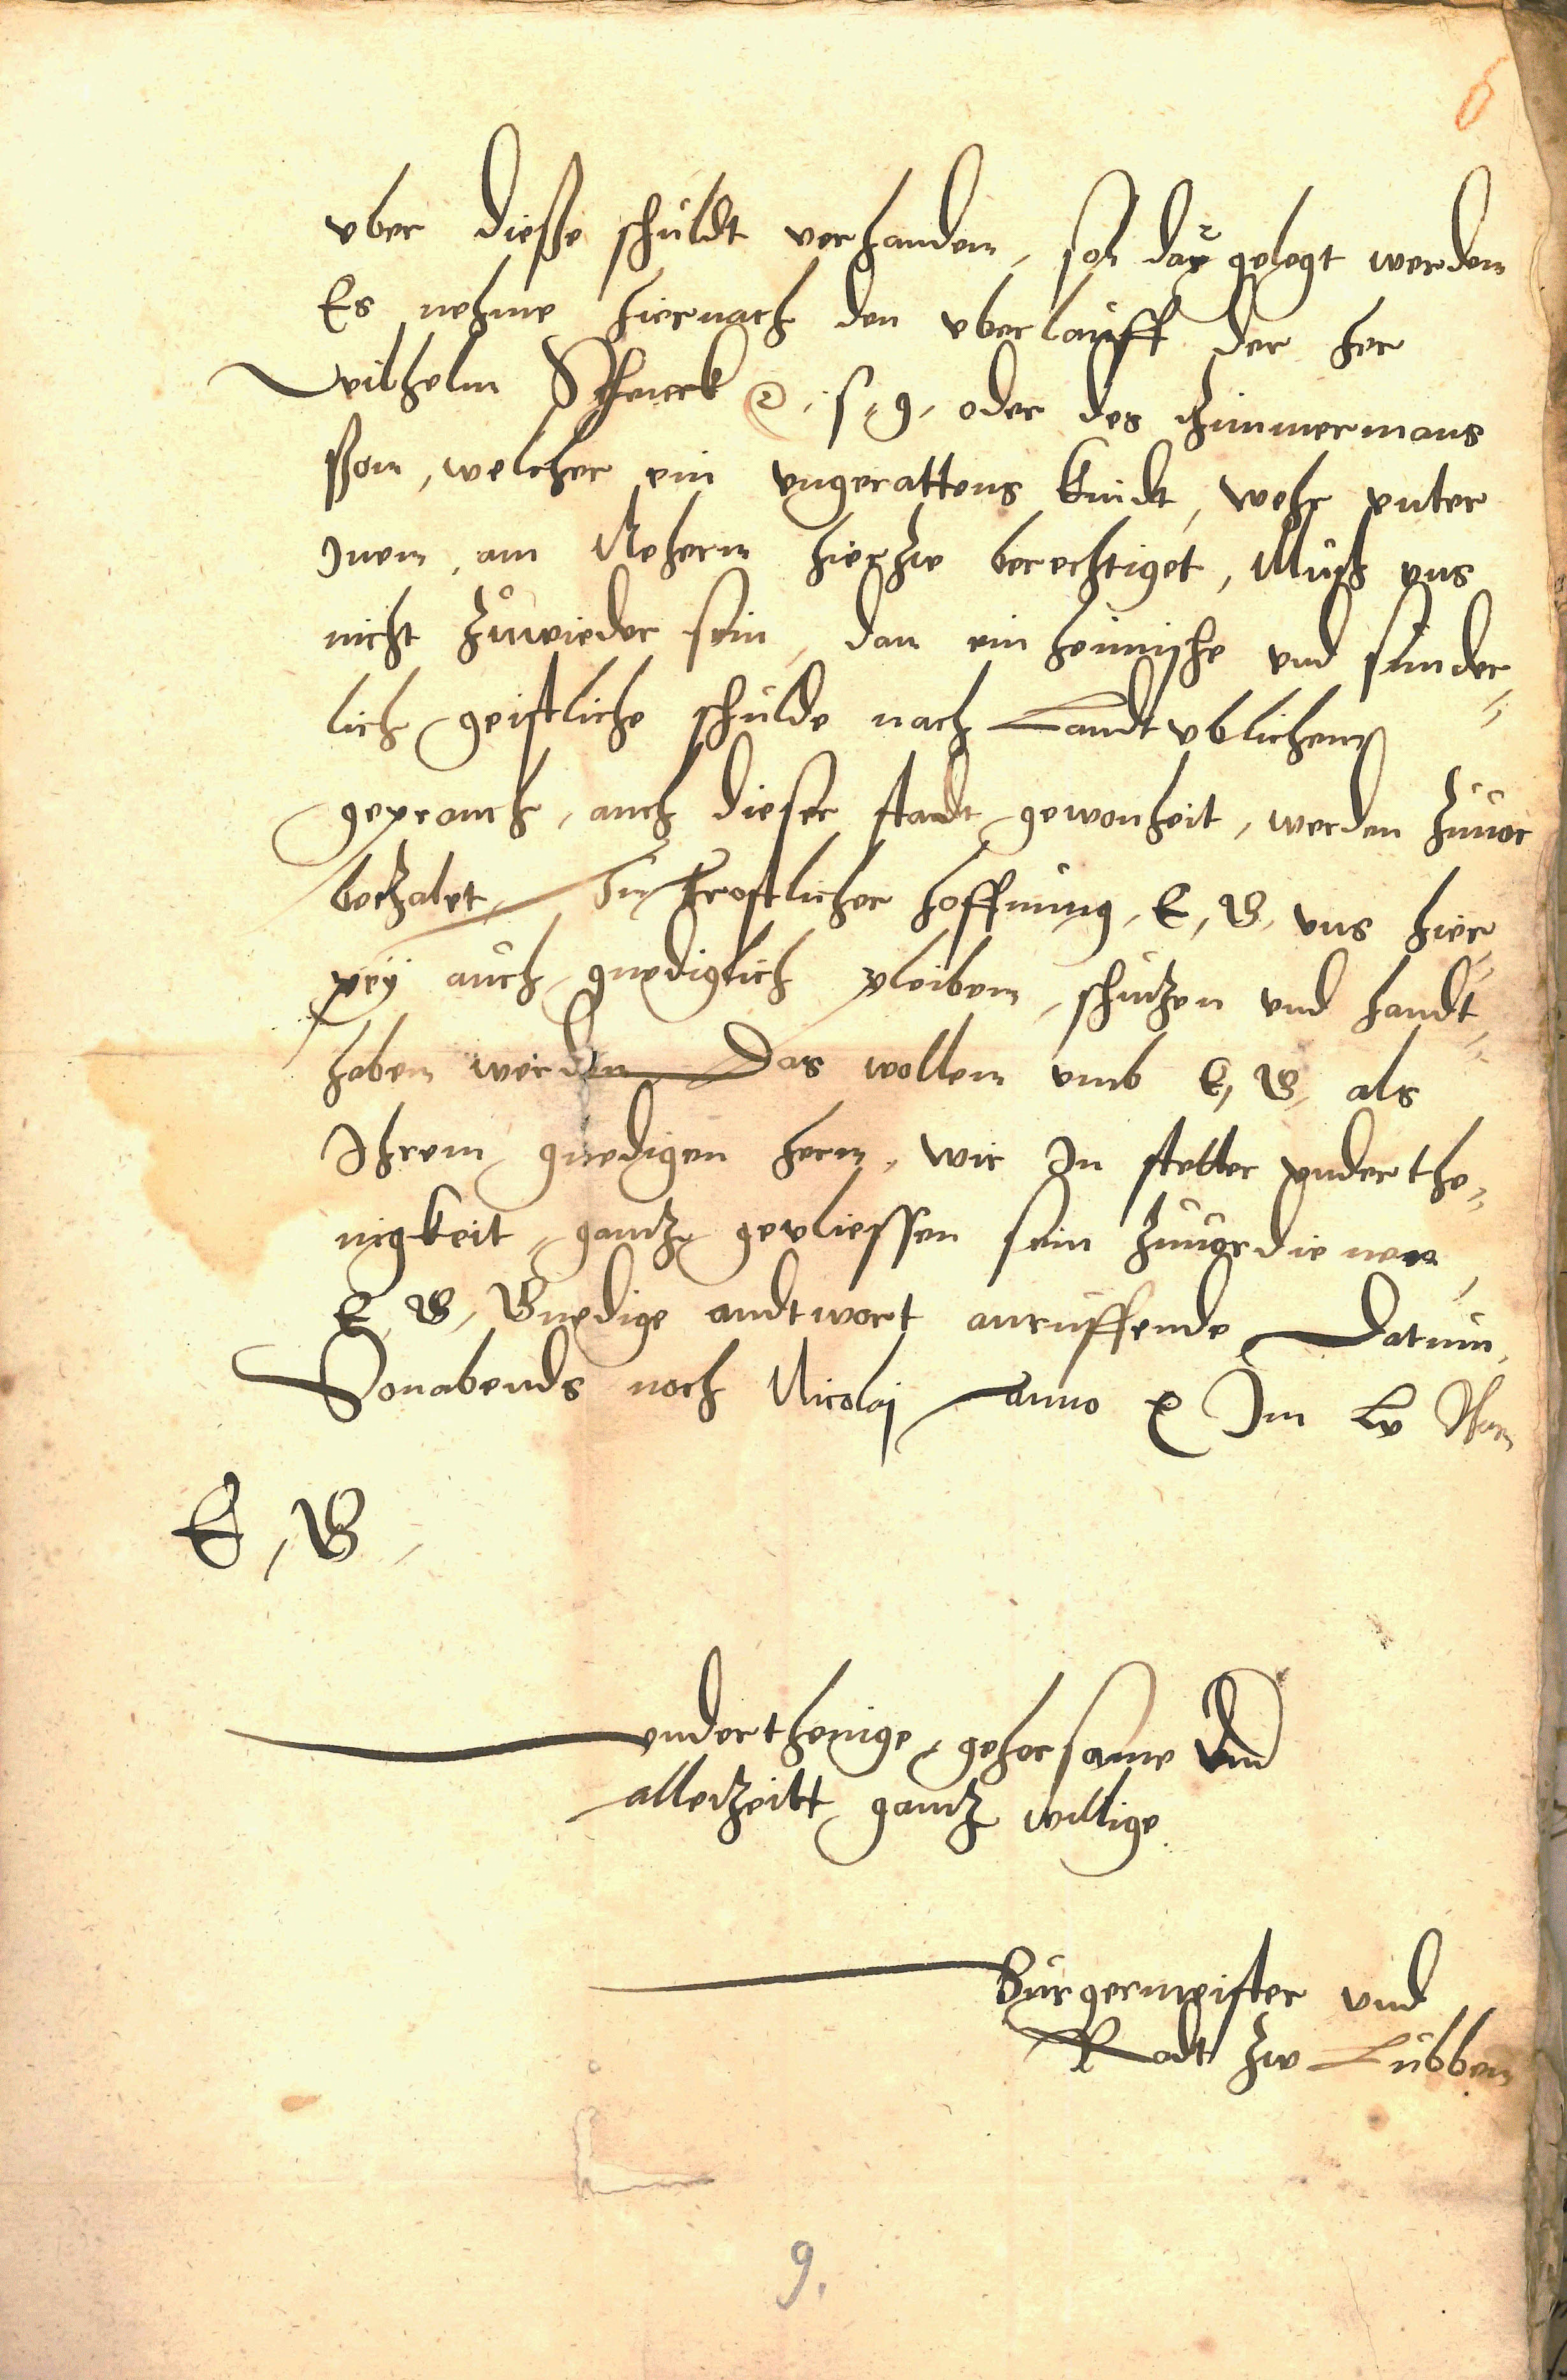 6
vber diesse schuldt verhanden, sol dar gelegt werden
Es nehme hiernach den vberlauff der her
Wilhelm Schenck etc. s. g. oder des Zimmermans
sson, welcher ein vngerattens kindt, wehr vnter
Inen, am Mehern hierzw berechtiget, Muss vns
nicht zuwieder sein, dan ein heimische vnd sunder-
lich geistliche schulde nach Landt vblichem
geprauch, auch dieser stadt gewonheit, werden zuuor
bezalet, In trostlicher hoffnung, E, G, vns hier-
pey auch gnediglich pleiben, schutzen vnd handt-
haben werden Das wollen vmb E, G, als
Ihrem gnedigen hern, wir In stetter vnderthe-
nigkeit, gantz gevliessen sein zuuordienen
E, G, Gnedige andtwort anruffende Datum,
Sonabends noch Nicolaj anno etc Im Lv Ihar
E, G,
vnderthenige, gehorsame Vnd
allezeitt gantz willige
Burgermeister vnd
Radt zw Lubben
9.